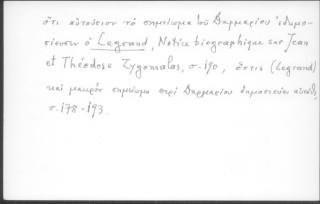 ὅτι αὐτούσιον τὸ σημείωμα τοῦ Δαρμαρίου ἐδημο-
σίευσεν ὁ Legrand, Notice biographique sur Jean
et Théodose Zygomalas, σ. 190, ὅστις (Legrand)
καὶ μακρὸν σημείωμα περὶ Δαρμαρίου δημοσιεύει αὐτόθι,
σ. 178-193.